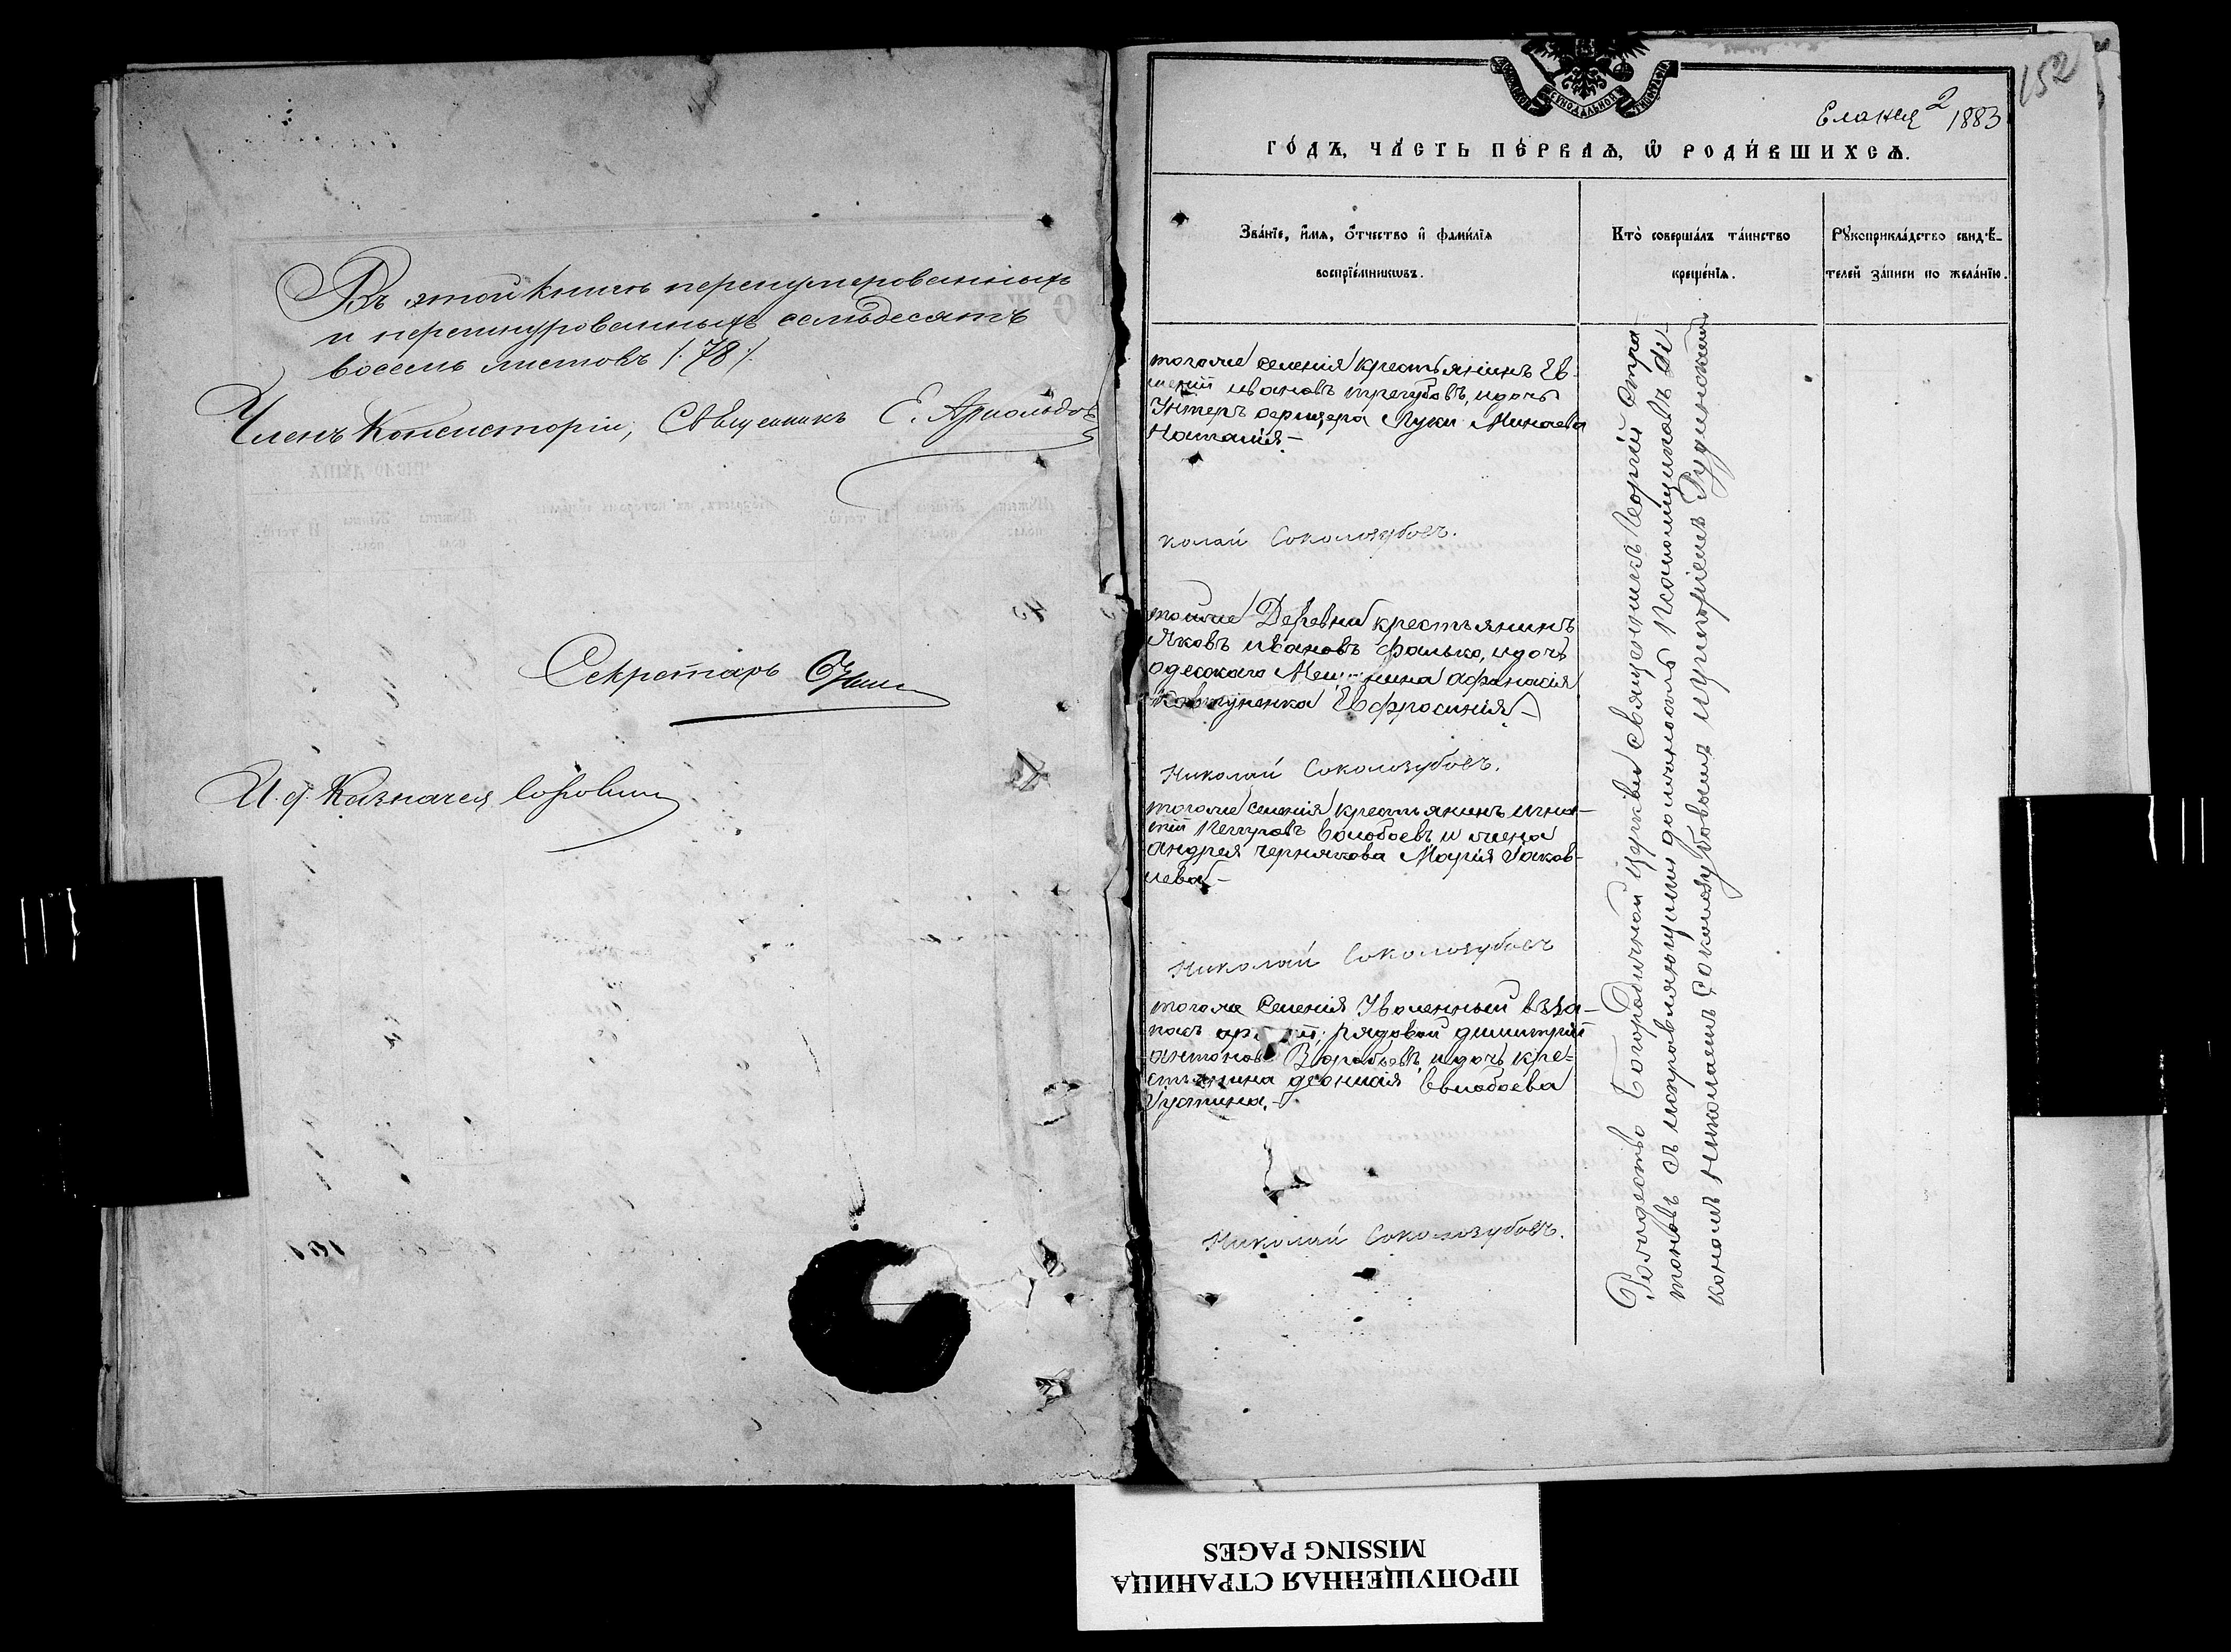 Въ этой книгѣ перенумерованныхъ
и перешнурованныхъ семьдесятъ
восемь листовъ /:78:/.
Членъ Консисторіи, Священникъ Е. Арнольдовъ
Секретарь
И. д. Казначея
152
2
1883
ГОДЪ, ЧАСТЬ ПЕРВАѦ, Ѡ РОДИВШИХСѦ.
Званіе, имѧ, отчество и фамиліѧ
воспріемникѡвъ.
Кто совершалъ таинство
крещеніѧ.
Рꙋкоприкладство свидѣ-
телей записи по желанію.
тогоже селенія крестьянинъ Ев-
Ивановъ Трегубовъ, и дочь
Унтеръ офицера Луки Минаева
Наталія –
колай Соколозубовъ.
тойже Деревни крестьянинъ
Яковъ Ивановъ Фалько, и дочь
одесскаго Мещанина Афанасія
Ковтуненка Евфросинія –
Николай Соколозубовъ.
тогоже селенія крестьянинъ Игна-
тій Петровъ и жена
Андрея Чернякова Марія Іаков-
лева –
Николай Соколозубовъ
тогоже Селенія Уволенный въ за-
пасъ рядовой Димитрій
Антоновъ Воробьевъ, и дочь кре-
стьянина
Іустина. –
Николай Соколозубовъ.
Рождество Богородичной церкви Священникъ Георгій Стра-
тоновъ съ исправляющимъ должность Псаломщиковъ Діа-
кономъ Николаемъ Соколозубовымъ и Григоріемъ
ПРОПУЩЕННАЯ СТРАНИЦА
MISSING PAGES